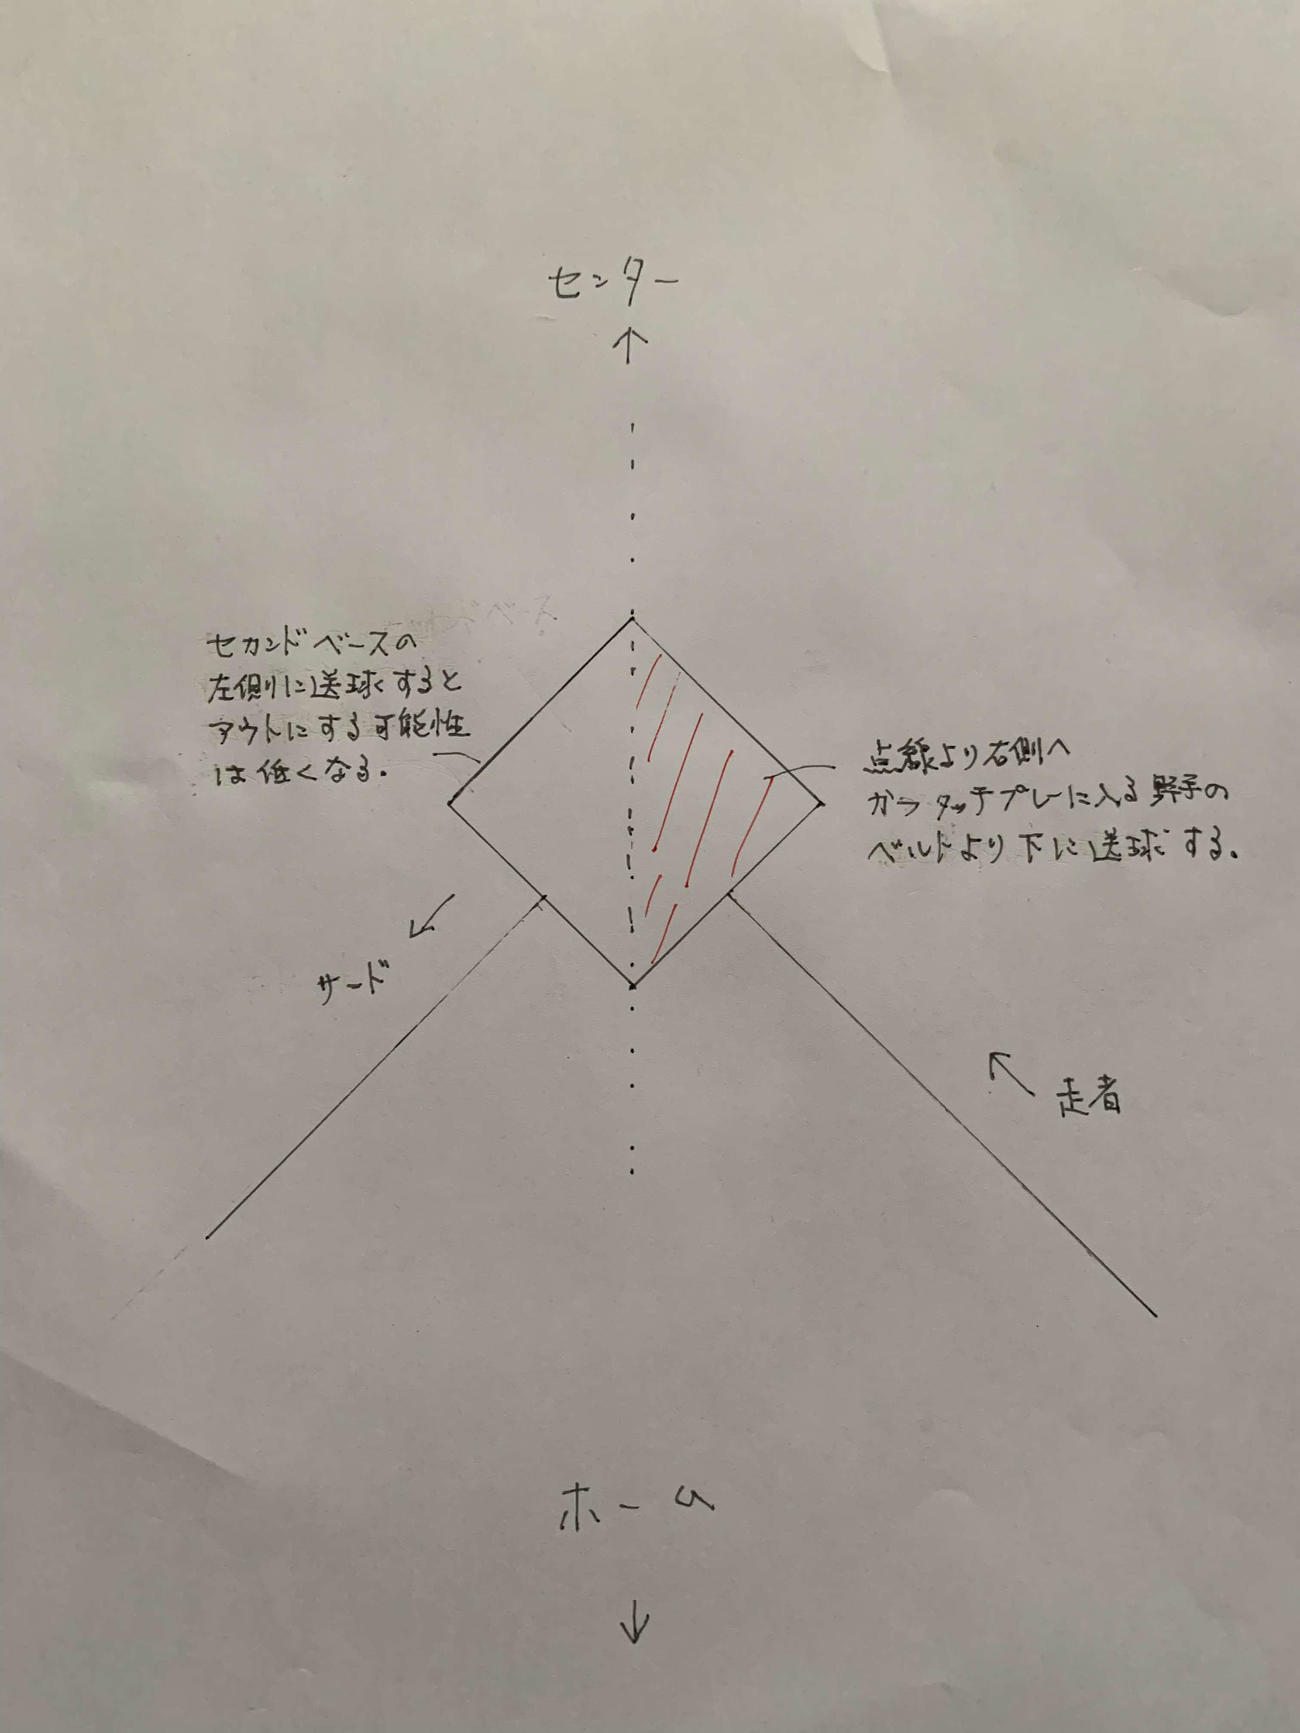 センター
セカンドベースの
左側に送球すると
アウトにする可能性
は低くなる.
点線より右側へ
かつ タッチプレーに入る野手の
ベルトより下に送球する.
サード
走者
ホーム